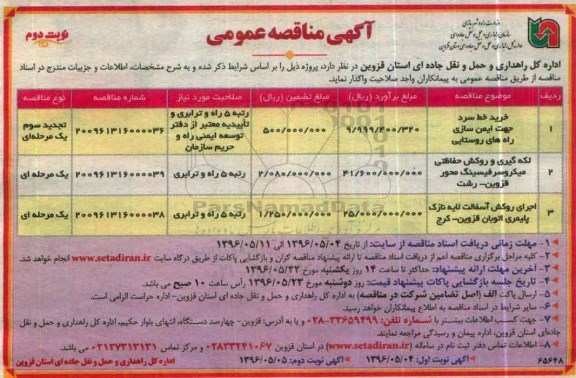 نوبت دوم
آگهی مناقصه عمومی
وزارت راه و شهرسازی
اداره کل راهداری و حمل و نقل جاده ای استان قزوین در نظر دارد، پروژه ذیل را بر اساس شرایط ذکر شده و به شرح مشخصات، اطلاعات و جزییات مندرج در اسناد
مناقصه از طریق مناقصه عمومی به پیمانکاران واجد صلاحیت واگذار نماید.
ردیف موضوع مناقصه مبلغ برآورد (ریال) مبلغ تضمین (ریال) صلاحیت مورد نیاز شماره مناقصه نوع مناقصه
۱ خرید خط سرد جهت ایمن سازی راه های روستایی ۹/۹۹۹/۴۰۰/۳۲۰ ۵۰۰/۰۰۰/۰۰۰ رتبه ۵ راه و ترابری و تأییدیه معتبر از دفتر توسعه ایمنی راه و حریم سازمان ۲۰۰۹۶۱۳۱۶۰۰۰۰۳۶ تجدید سوم یک مرحله‌ای
۲ لکه گیری و روکش حفاظتی میکروسرفیسینگ محور قزوین- رشت ۴۱/۶۰۰/۰۰۰/۰۰۰ ۲/۰۸۰/۰۰۰/۰۰۰ رتبه ۵ راه و ترابری ۲۰۰۹۶۱۳۱۶۰۰۰۰۳۹ یک مرحله ای
۳ اجرای روکش آسفالت لایه نازک پلیمری اتوبان قزوین- کرج ۲۵/۰۰۰/۰۰۰/۰۰۰ ۱/۲۵۰/۰۰۰/۰۰۰ رتبه ۵ راه و ترابری ۲۰۰۹۶۱۳۱۶۰۰۰۰۳۸ یک مرحله ای
ParsNamadData
۱- مهلت زمانی دریافت اسناد مناقصه از سایت: از تاریخ ۱۳۹۶/۰۵/۰۴ الی ۱۳۹۶/۰۵/۱۱
۲- کلیه مراحل برگزاری مناقصه اعم از دریافت اسناد مناقصه تا ارائه پیشنهاد مناقصه گران و بازگشایی پاکات از طریق درگاه سایت www.setadiran.ir انجام خواهد شد.
۳- آخرین مهلت ارائه پیشنهاد: حداکثر تا ساعت ۱۴ روز یکشنبه مورخ ۱۳۹۶/۰۵/۲۲
۴- تاریخ جلسه بازگشایی پاکات پیشنهاد قیمت: روز دوشنبه مورخ ۱۳۹۶/۰۵/۲۳ رأس ساعت ۱۰ صبح می باشد.
۵- ارسال پاکت الف (اصل تضمین شرکت در مناقصه) به اداره کل راهداری و حمل و نقل جاده ای استان قزوین- اداره حراست الزامی است.
۶- سایر شرایط در اسناد مناقصه به اطلاع پیمانکاران خواهد رسید.
۷- جهت کسب اطلاعات بیشتر با شماره تلفن: ۳۳۶۵۹۴۹۹-۰۲۸ و یا به آدرس: قزوین- چهارصد دستگاه، انتهای بلوار حکیم، اداره کل راهداری و حمل و نقل
جاده‌ای استان قزوین، اداره پیمان و رسیدگی مراجعه نمایند.
۸- اطلاعات تماس دفتر ثبت نام در سامانه (www.setadiran.ir) در استان قزوین ۰۲۸۳۳۲۴۱۰۶۷ و مرکز تماس ۰۲۱۲۷۳۱۳۱۳۱ می باشد.
۶۵۶۴۸ آگهی نوبت اول: ۱۳۹۶/۰۵/۰۴ آگهی نوبت دوم: ۱۳۹۶/۰۵/۰۵ اداره کل راهداری و حمل و نقل جاده ای استان قزوین